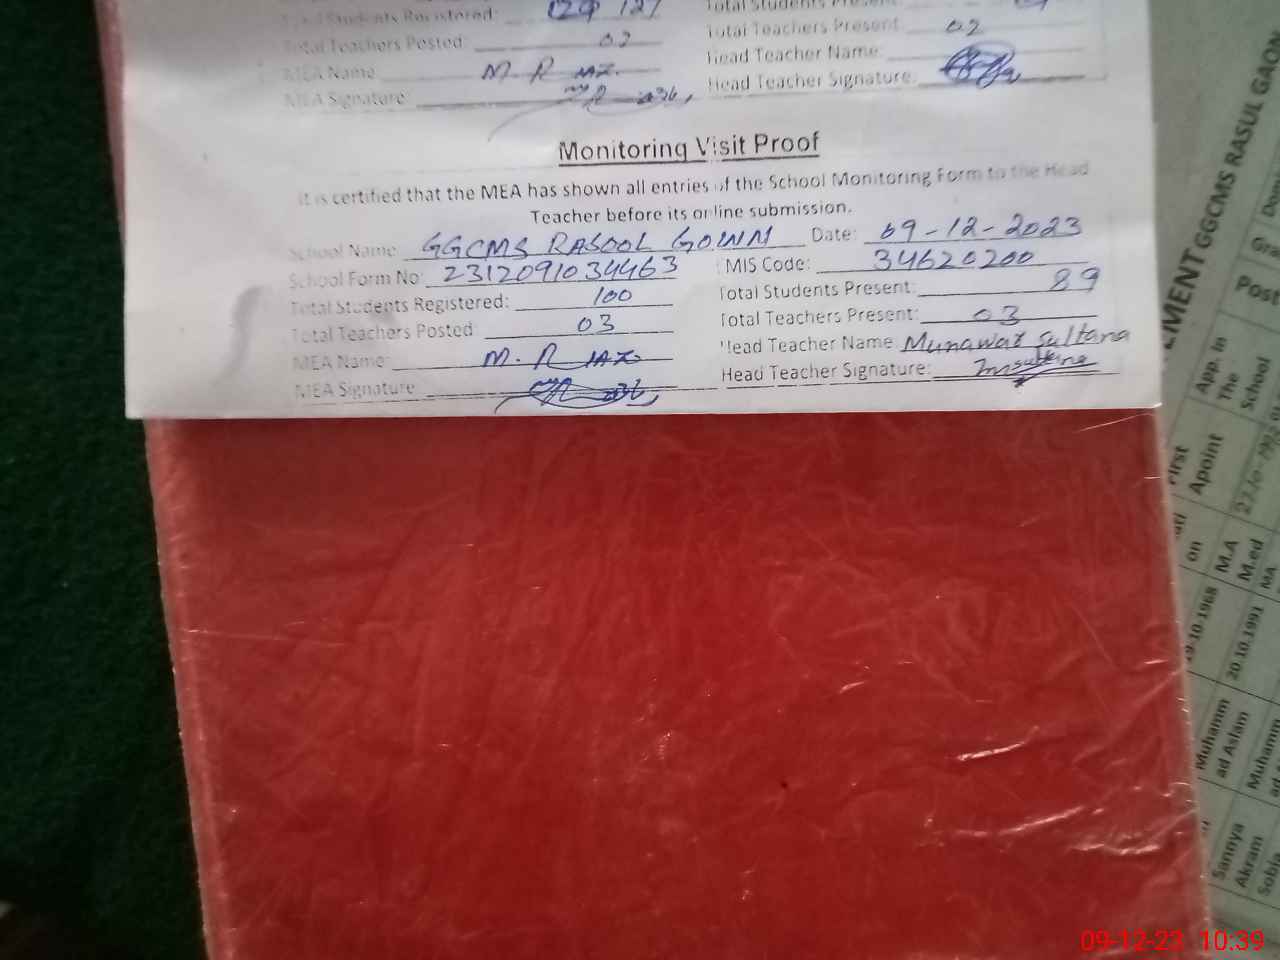 Total Students Registered:
Total Students Present:
Total Teachers Posted: 02
Total Teachers Present: 02
MEA Name: M. R
Head Teacher Name:
MEA Signature:
Head Teacher Signature:
Monitoring Visit Proof
It is certified that the MEA has shown all entries of the School Monitoring Form to the Head
Teacher before its online submission.
School Name: GGCMS RASOOL GOWN Date: 09-12-2023
School Form No: 2312091034463 EMIS Code: 34620200
Total Students Registered: 100 Total Students Present: 89
Total Teachers Posted: 03 Total Teachers Present: 03
MEA Name: M. R Head Teacher Name Munawar Sultana
MEA Signature: Head Teacher Signature: Msultana
GGCMS RASUL GAON
Post
App. In
The
School
First
Apoint
on
M.A
M.ed
MA
19-10-1968
20.10.1991
Muhamm
ad Aslam
Muhamm
Saniya
Akram
Sobia
09-12-23 10:39